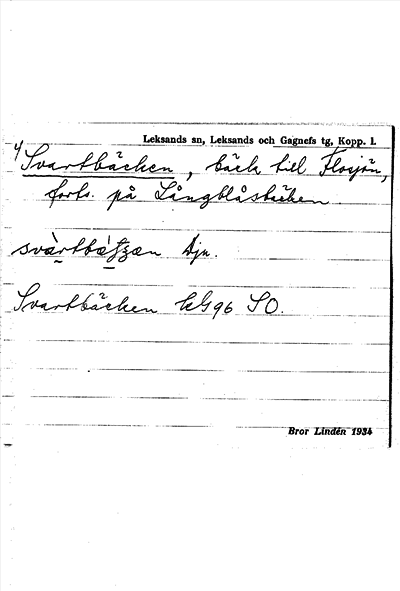 Leksands sn, Leksands och Gagnefs tg, Kopp. l.
4) Svartbäcken, bäck till Flosjön,
forts. på Långblåsbäcken.
Dju.
Svartbäcken kG96 SO.
Bror Lindén 1934